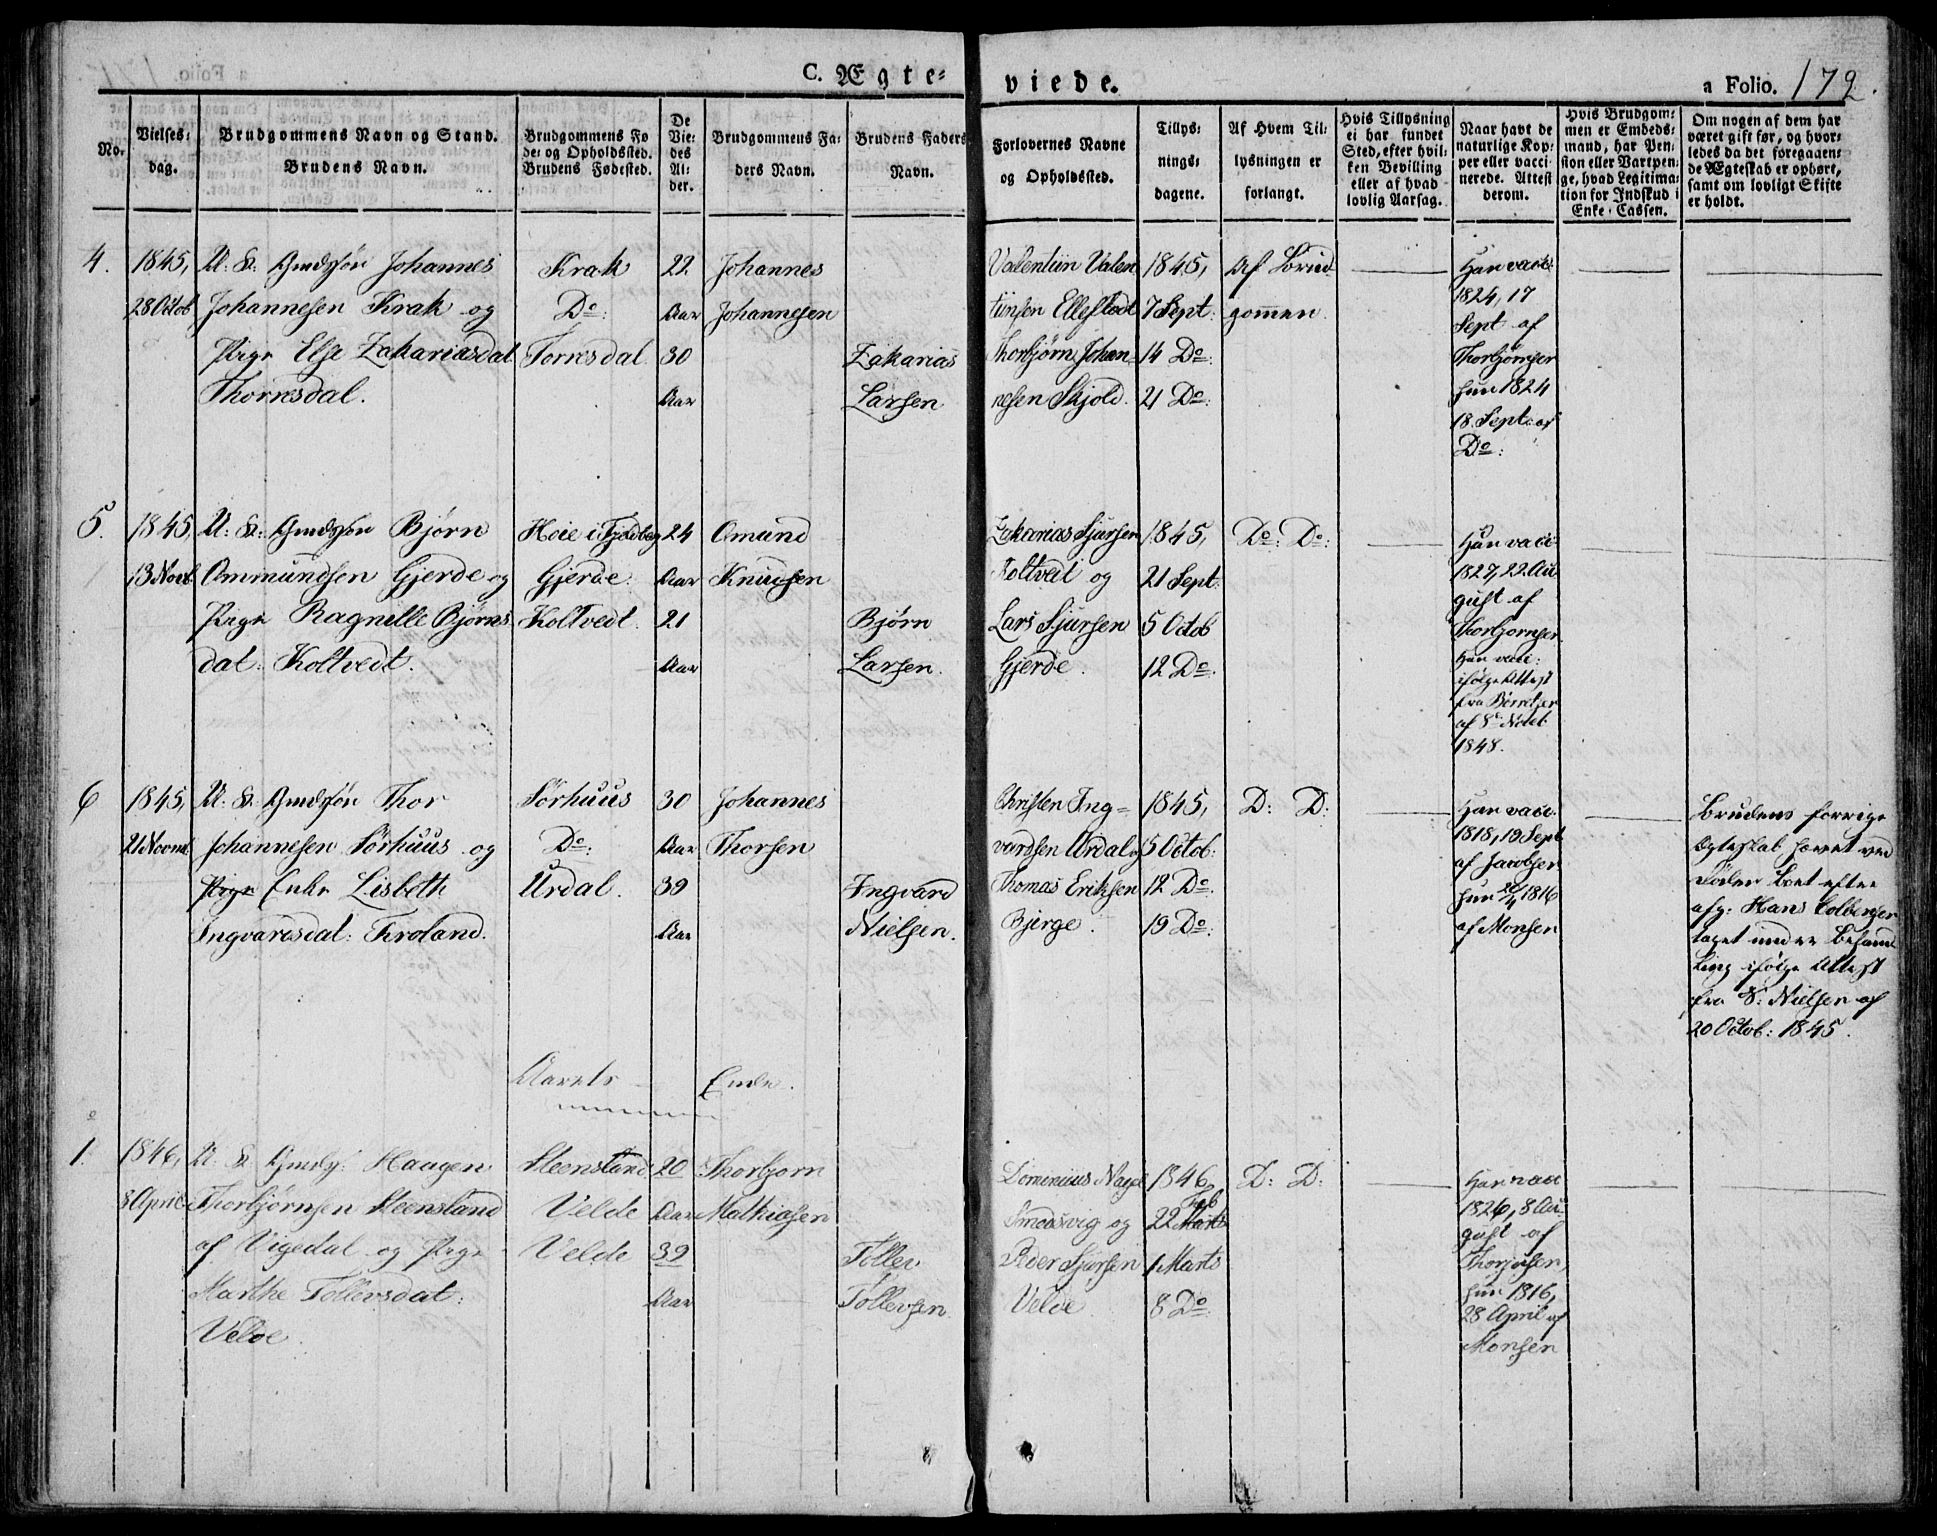 C. Ægte-
viede.
a Folio. 172.
No.
Vielses-
dag.
Brudgommens Navn og Stand.
Brudens Navn.
Brudgommens Fø
de- og Opholdssted.
Brudens Fødested.
De
Vie-
des
Al-
der.
Brudgommens Fa-
ders Navn.
Brudens Faders
Navn.
Forlovernes Navne
og Opholdssted.
Tillys-
nings-
dagene.
Af Hvem Til-
lysningen er
forlangt.
Hvis Tillysning
ei har fundet
Sted, efter hvil-
ken Bevilling
eller af hvad
lovlig Aarsag.
Naar havt de
naturlige Kop-
per eller vacci-
nerede. Attest
derom.
Hvis Brudgom-
men er Embeds-
mand, har Pen-
sion eller Vartpen-
ge, hvad Legitima-
tion for Indskud i
Enke-Cassen.
Om nogen af dem har
været gift før, og hvor-
ledes da det foregaaen-
de Ægteskab er ophørt,
samt om lovligt Skifte
er holdt.
4.
1845,
28 Octob
U: K: Gmdssøn Johannes
Johannesen Krak og
Pige Else Zakariasdat
Thorresdal.
Krak
Do:
Torresdal
22
Aar
30
Aar
Johannes
Johannesen
Zakarias
Larsen
Valentiin Valen
tinsen Ellestad
Thorbjørn Johan-
nesen Skjold.
1845,
7 Sept:
14 Do:
21 Do:
Af Brud
gommen.
Han vacc:
1824, 17
Sept af
Thorbjørnsen
hun 1824
18. Sept: af
Do:
5.
1845
13 Novb
U: K: Gmdssøn Bjørn
Ommundsen Gjerde og
Pige Ragnille Bjørns
dat: Koltvedt.
Høie i
Gjerde.
Koltvedt.
24
Aar
21
Aar
Omund
Knudsen
Bjørn
Larsen.
Zakarias Sjursen
Koltveit og
Lars Sjursen
Gjerde.
1845,
21 Sept:
5 Octob
12 Do:
Do: Do:
Han vacc
1827, 22 Au
gust af
Thorbjørnsen
Hun vacc:
ifølge Attest
fra
af 8de
1848.
6
1845,
21 Novmb
U: K: Gmdssøn Thor
Johannesen Sørhuus og
Pige Enke Lisbeth
Ingvarsdat: Froland.
Sørhuus
Do:
Urdal.
30
Aar
39
Aar
Johannes
Thorsen
Ingvard
Nielsen.
Christen Ing=
vardsen Urdal
Thomas Eriksen
Bjerge.
1845,
5 Octob:
12 Do:
19 Do:
D: D:
Han vacc.
1818, 19 Sept
af Jacobsen
hun 20/4 1816
af Monsen
Brudens forrige
Ægteskab hævet ved
Døden Boet efter
afg: Hans
taget under Behand
ling ifølge Attest
fra S: Nielsen af
20 Octob: 1845.
Aarets Ende.
1.
1846,
8 April
U: K: Gmds: Haagen
Thorbjørnsen Steensland
af Vigedal og Pige
Marthe Tollevsdat:
Velde.
Steensland
Velde
Velde
20
Aar
39
Aar
Thorbjørn
Mathiasen
Tollev
Tollevsen
Dominius
Smedsvig og
Peder Sjursen
Velde.
1846
22 Marts Feb
1 Marts
8 Do:
D: D:
Han vacc
1826, 8 Au
gust af
hun 1816,
28 April af
Monsen